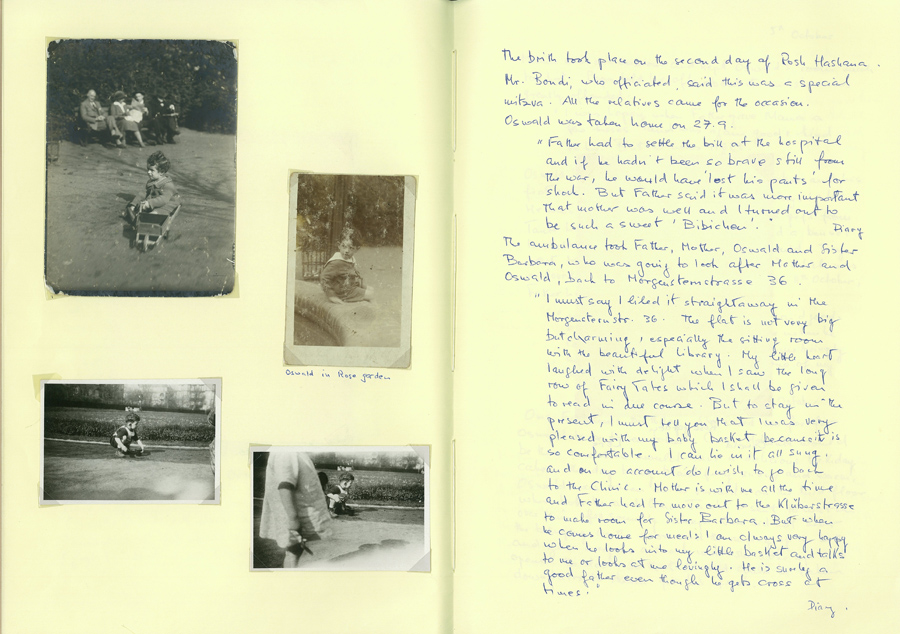 Oswald in Rose garden
The brith took place on the second day of Rosh Hashana.
Mr. Bondi, who officiated, said this was a special
mitzva. All the relatives came for the occasion.
Oswald was taken home on 27.9.
"Father had to settle the bill at the hospital
and if he hadn't been so brave still from
the war, he would have 'lost his pants' for
shock. But Father said it was more important
that mother was well and I turned out to
be such a sweet 'Bibichen'."
Diary
The ambulance took Father, Mother, Oswald and Sister
Barbara, who was going to look after Mother and
Oswald, back to Morgensternstrasse 36.
"I must say I liked it straightaway in the
Morgensternstr. 36. The flat is not very big
but charming, especially the sitting room
with the beautiful library. My little heart
laughed with delight when I saw the long
row of Fairy Tales which I shall be given
to read in due course. But to stay in the
present, I must tell you that I was very
pleased with my baby basket because it is
so comfortable. I can lie in it all snug.
and on no account do I wish to go back
to the Clinic. Mother is with me all the time
and Father had to move out to the Klüberstrasse
to make room for Sister Barbara. But when
he comes home for meals I am always very happy
when he looks into my little basket and talks
to me or looks at me lovingly. He is surely a
good father even though he gets cross at
times."
Diary.